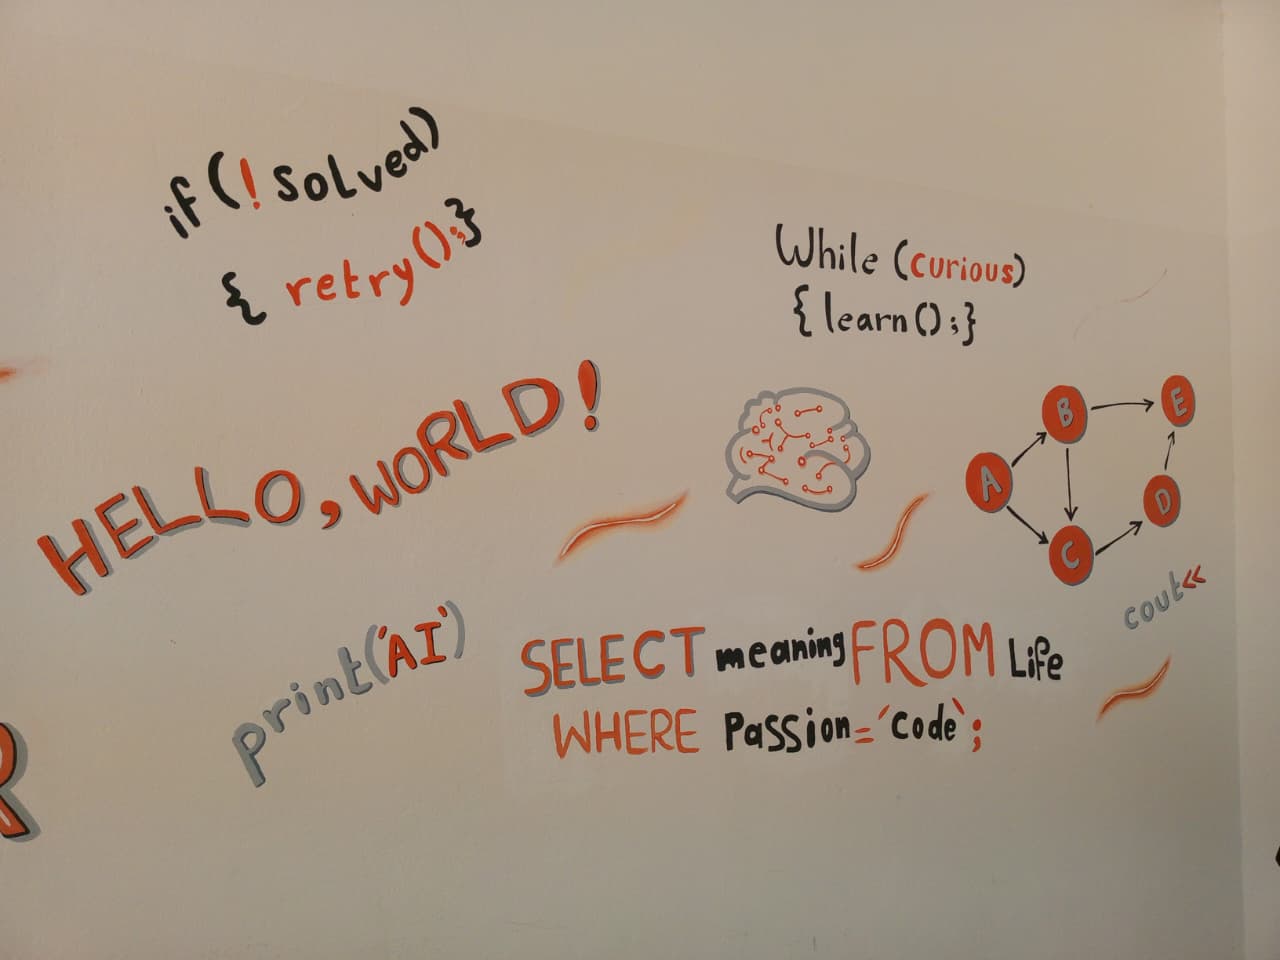 if (!solved)
{ retry();}
While (curious)
{ learn();}
HELLO, WORLD!
A
B
C
D
E
cout<<
print('AI')
SELECT meaning FROM Life
WHERE Passion='Code';
R